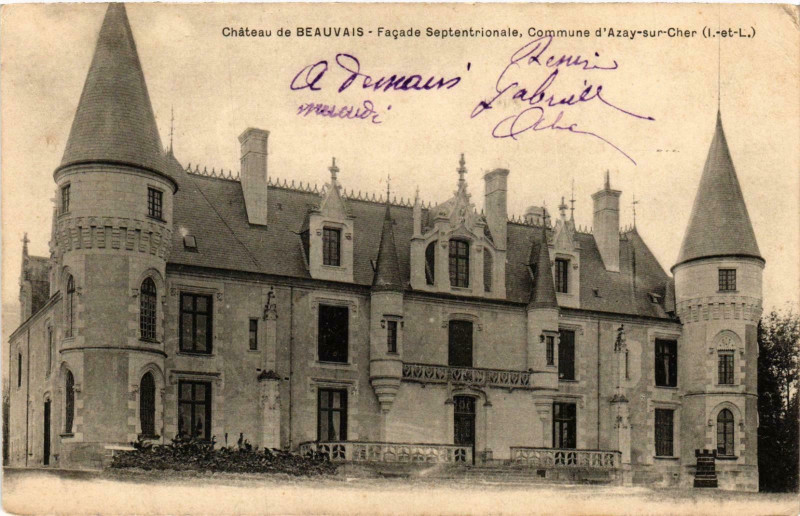 Château de BEAUVAIS - Façade Septentrionale, Commune d'Azay-sur-Cher (I.-et-L.)
A Demain
mercredi
Gabrielle